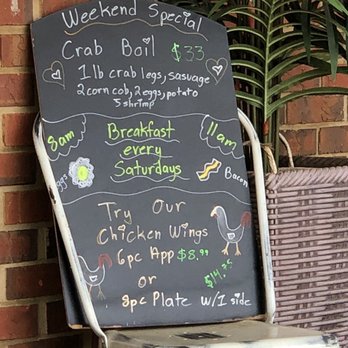 Weekend Special
Crab Boil $33
1 lb crab legs, sasuage
2 corn cob, 2 eggs, potato
5 shrimp
8am Breakfast 11am
every
Saturdays
eggs Bacon
Try Our
Chicken Wings
6pc App $8.99
or $14.25
8pc Plate w/1 side